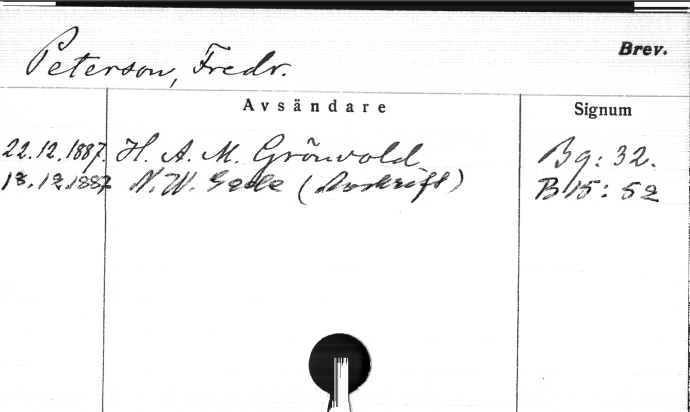 Brev.
Peterson, Fredr.
Avsändare Signum
22.12.1887. H. A. M. Grönvold B 9: 32.
18.12.1887 N. W. Gade (Avskrift) B 15: 52